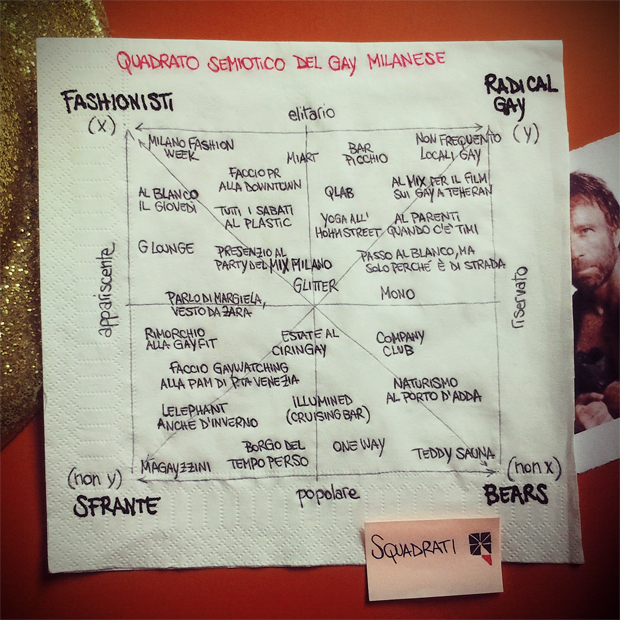 QUADRATO SEMIOTICO DEL GAY MILANESE
FASHIONISTI
(x)
elitario
RADICAL
GAY
(y)
MILANO FASHION
WEEK
MIART
BAR
PICCHIO
NON FREQUENTO
LOCALI GAY
FACCIO PR
ALLA DOWNTOWN
AL BLANCO
IL GIOVEDÌ
QLAB
AL MIX PER IL FILM
SUI GAY A TEHERAN
TUTTI I SABATI
AL PLASTIC
YOGA ALL'
HOHMSTREET
AI PARENTI
QUANDO C'È TIMI
G LOUNGE
PRESENZIO AL
PARTY DEL MIX MILANO
PASSO AL BLANCO, MA
SOLO PERCHÉ È DI STRADA
GLITTER
appariscente
riservato
PARLO DI MARGIELA,
VESTO DA ZARA
MONO
RIMORCHIO
ALLA GAYFIT
ESTATE AL
CIRINGAY
COMPANY
CLUB
FACCIO GAYWATCHING
ALLA PAM DI P.TA VENEZIA
NATURISMO
AL PORTO D'ADDA
LELEPHANT
ANCHE D'INVERNO
ILLUMINED
(CRUISING BAR)
BORGO DEL
TEMPO PERSO
ONE WAY
TEDDY SAUNA
MAGAYZZINI
(non y)
SFRANTE
popolare
(non x)
BEARS
SQUADRATI